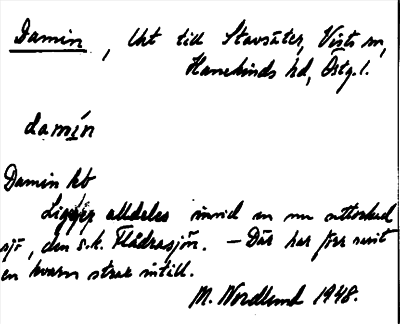 Damin, Utk till Stavsäter, Vists sn,
Hanekinds hd, Östg. l.
damín
Damin kb
Ligger alldeles invid en nu uttorkad
sjö, den s.k. Flädrasjön. — Där har förr varit
en kvarn strax intill.
M. Nordlund 1948.